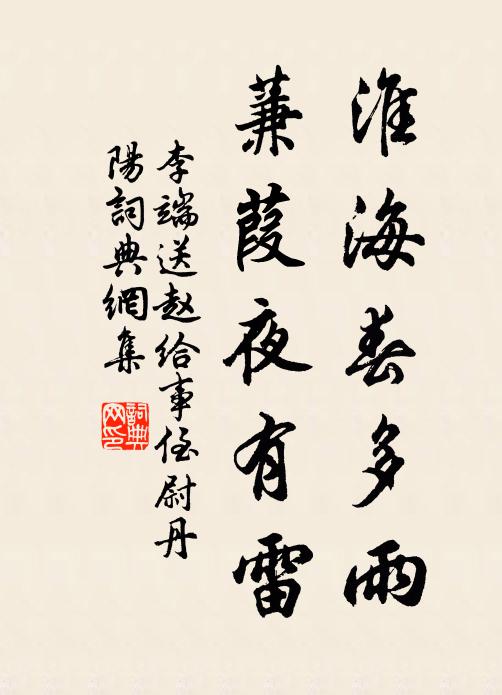 淮海春多雨
蒹葭夜有雷
李端送趙給事侄尉丹
陽詞典網集
詞典
网印